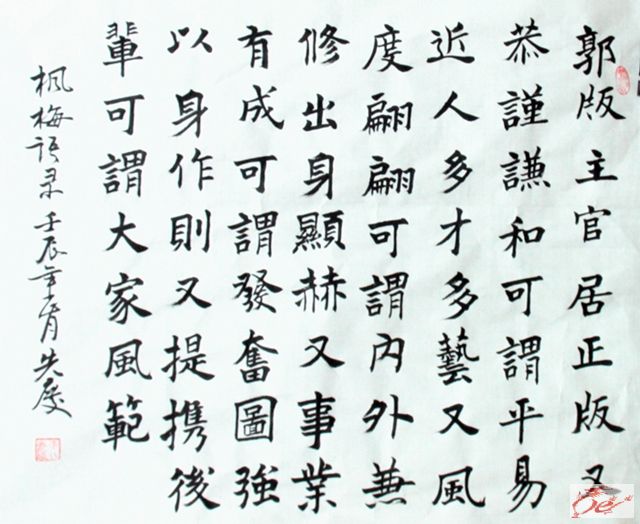 郭版主官居正版又
恭謹謙和可謂平易
近人多才多藝又風
度翩翩可謂內外兼
修出身顯赫又事業
有成可謂發奮圖強
以身作則又提携後
輩可謂大家風範
楓梅语录壬辰年